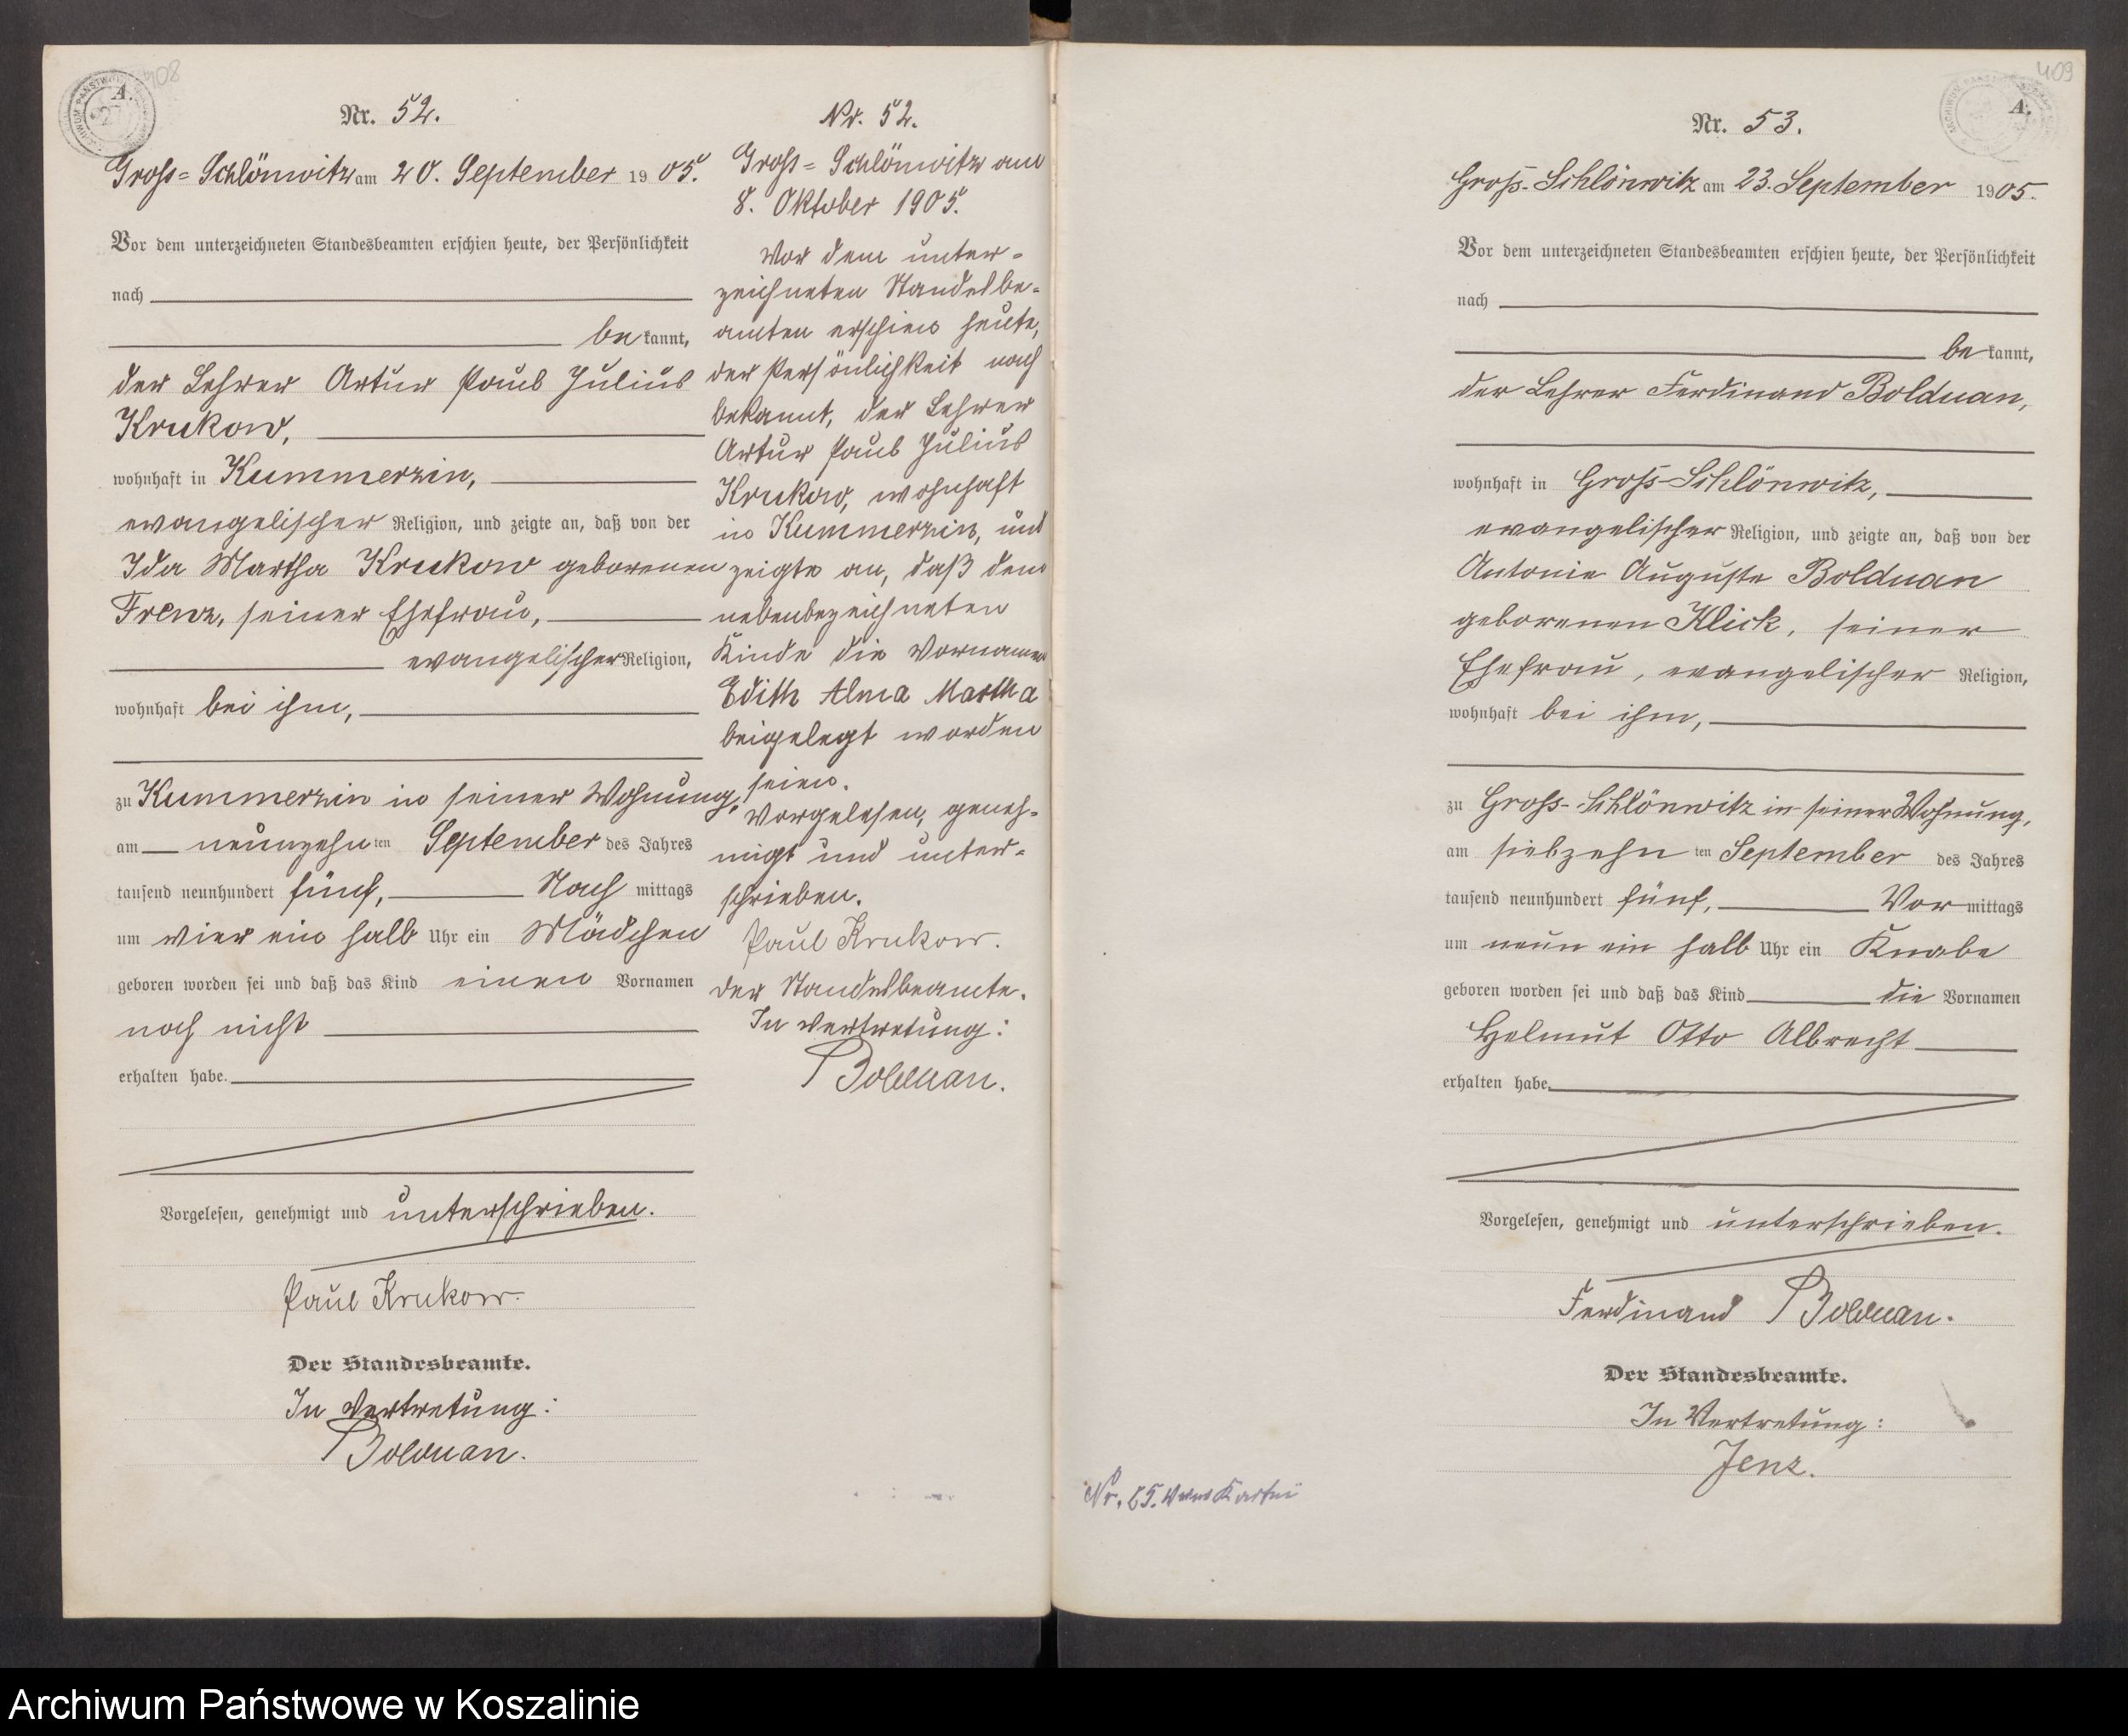 408
A.
Nr. 52.
Gross=Schlönwitz am 20. September 1905.
Vor dem unterzeichneten Standesbeamten erschien heute, der Persönlichkeit
nach
bekannt,
der Lehrer Artur Paul Julius
Krukow,
wohnhaft in Kummerzin,
evangelischer Religion, und zeigte an, daß von der
Ida Martha Krukow geborenen
Frenz, seiner Ehefrau,
evangelischer Religion,
wohnhaft bei ihm,
zu Kummerzin in seiner Wohnung,
am neunzehnten September des Jahres
tausend neunhundert fünf, Nachmittags
um vier ein halb Uhr ein Mädchen
geboren worden sei und daß das Kind einen Vornamen
noch nicht
erhalten habe.
Vorgelesen, genehmigt und unterschrieben.
Paul Krukow.
Der Standesbeamte.
In Vertretung:
Bolduan.
Nr. 52.
Gross=Schlönwitz am
8. Oktober 1905.
Vor dem unter=
zeichneten Standesbe=
amten erschien heute,
der Persönlichkeit nach
bekannt, der Lehrer
Artur Paul Julius
Krukow, wohnhaft
in Kummerzin, und
zeigte an, daß dem
nebenbezeichneten
Kinde die Vornamen
Edith Alma Martha
beigelegt worden
seien.
Vorgelesen, geneh=
migt und unter=
schrieben.
Paul Krukow.
Der Standesbeamte.
In Vertretung:
Bolduan.
409
A.
Nr. 53.
Groß-Schlönwitz am 23. September 1905.
Vor dem unterzeichneten Standesbeamten erschien heute, der Persönlichkeit
nach
bekannt,
der Lehrer Ferdinand Bolduan,
wohnhaft in Groß-Schlönwitz,
evangelischer Religion, und zeigte an, daß von der
Antonie Auguste Bolduan
geborenen Klick, seiner
Ehefrau, evangelischer Religion,
wohnhaft bei ihm,
zu Gross-Schlönwitz in seiner Wohnung,
am siebzehnten September des Jahres
tausend neunhundert fünf, Vormittags
um neun ein halb Uhr ein Knabe
geboren worden sei und daß das Kind die Vornamen
Helmut Otto Albrecht
erhalten habe.
Vorgelesen, genehmigt und unterschrieben.
Ferdinand Bolduan.
Der Standesbeamte.
In Vertretung:
Jenz.
Archiwum Państwowe w Koszalinie